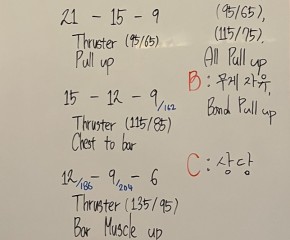 21 - 15 - 9
Thruster (95/65)
Pull up
15 - 12 - 9/162
Thruster (115/85)
Chest to bar
12/186 - 9/204 - 6
Thruster (135/95)
Bar Muscle up
(95/65),
(115/75).
All Pull up
B : 무게 자유,
Band Pull up
C : 상당